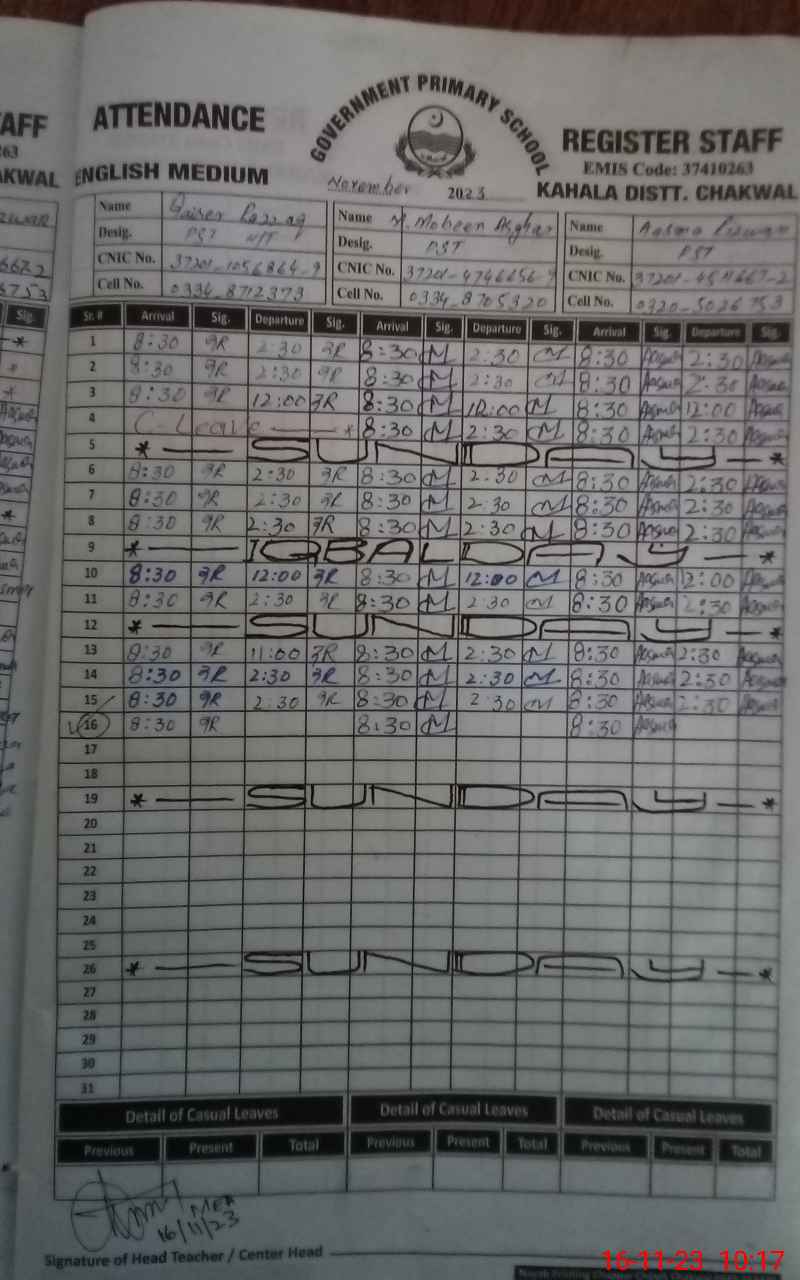 AFF
263
AKWAL
ATTENDANCE
GOVERNMENT PRIMARY SCHOOL
REGISTER STAFF
EMIS Code: 37410263
ENGLISH MEDIUM
November 2023
KAHALA DISTT. CHAKWAL
Name Name M. Mobeen Asghar Name
Desig. PST Desig. PST Desig. PST
CNIC No. 37201-1056864-9 CNIC No. 37201-4746656-9 CNIC No. 37201-4511667-2
Cell No. 0334-8712373 Cell No. 0334-8705320 Cell No. 0320-5026753
Sig. Sr. # Arrival Sig. Departure Sig. Arrival Sig. Departure Sig. Arrival Sig. Departure Sig.
1 8:30 9R 2:30 9R 8:30 M 2:30 M 8:30 Aasma 2:30 Aasma
2 8:30 9R 2:30 9R 8:30 M 2:30 M 8:30 Aasma 2:30 Aasma
3 8:30 9R 12:00 9R 8:30 M 12:00 M 8:30 Aasma 12:00 Aasma
4 C-Leave * 8:30 M 2:30 M 8:30 Aasma 2:30 Aasma
5 * — SUNDAY — *
6 8:30 9R 2:30 9R 8:30 M 2:30 M 8:30 Aasma 2:30 Aasma
7 8:30 9R 2:30 9R 8:30 M 2:30 M 8:30 Aasma 2:30 Aasma
8 8:30 9R 2:30 9R 8:30 M 2:30 M 8:30 Aasma 2:30 Aasma
9 * — IQBAL DAY — *
10 8:30 9R 12:00 9R 8:30 M 12:00 M 8:30 Aasma 12:00 Aasma
11 8:30 9R 2:30 9R 8:30 M 2:30 M 8:30 Aasma 2:30 Aasma
12 * — SUNDAY — *
13 8:30 9R 11:00 9R 8:30 M 2:30 M 8:30 Aasma 2:30 Aasma
14 8:30 9R 2:30 9R 8:30 M 2:30 M 8:30 Aasma 2:30 Aasma
15 8:30 9R 2:30 9R 8:30 M 2:30 M 8:30 Aasma 2:30 Aasma
16 8:30 9R 8:30 M 8:30 Aasma
17
18
19 * — SUNDAY — *
20
21
22
23
24
25
26 * — SUNDAY — *
27
28
29
30
31
Detail of Casual Leaves Detail of Casual Leaves Detail of Casual Leaves
Previous Present Total Previous Present Total Previous Present Total
MEA
16/11/23
Signature of Head Teacher / Center Head
16-11-23 10:17